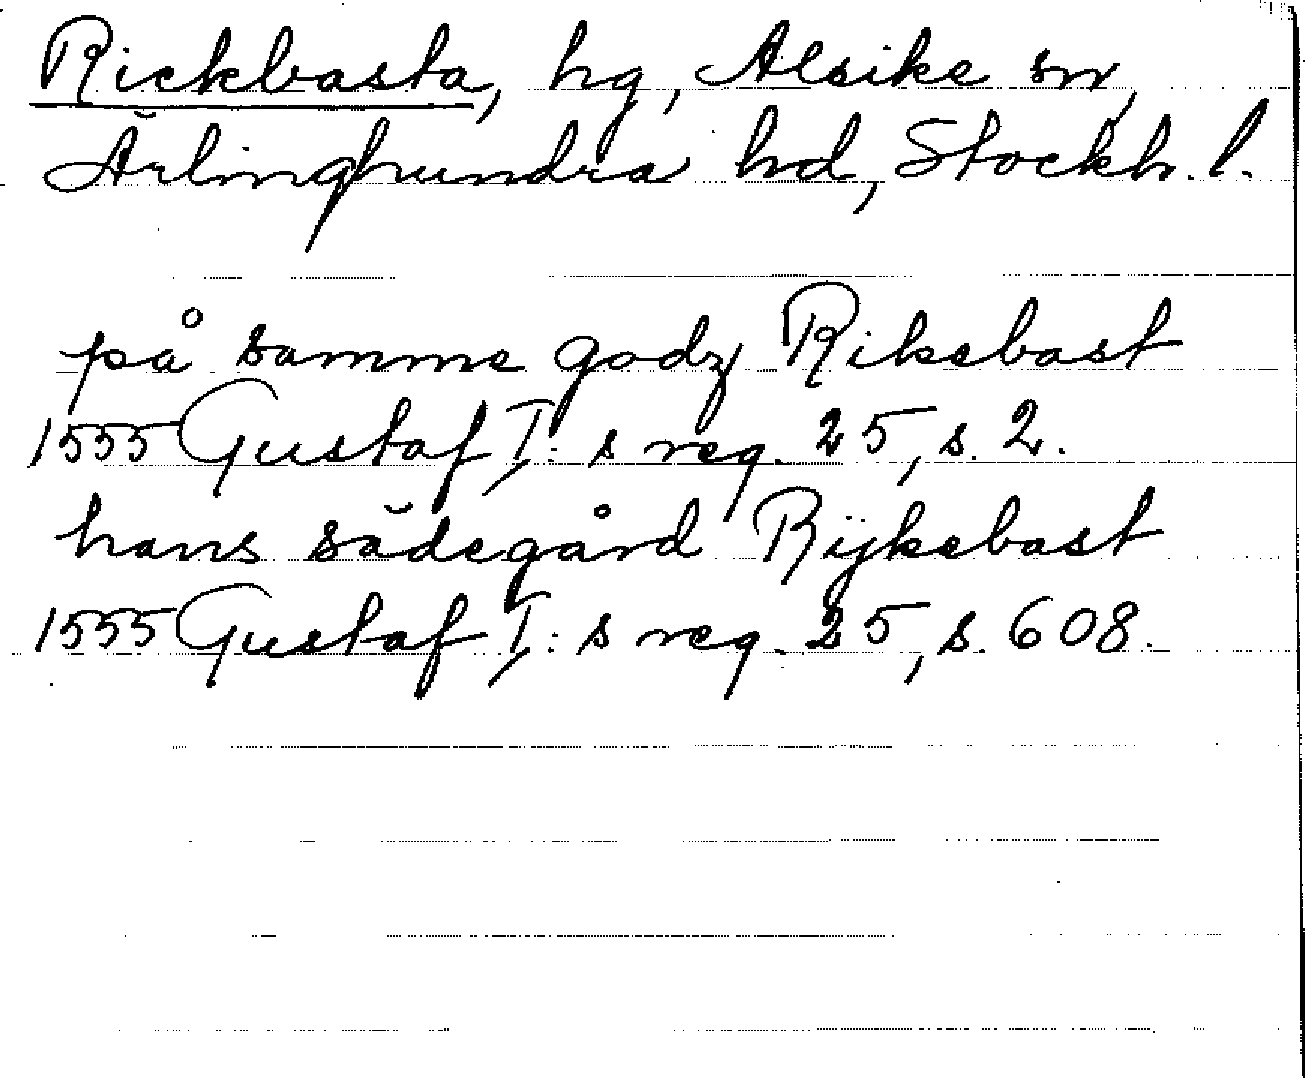 Rickbasta, hg, Alsike sn,
Ärlinghundra hd, Stockh. l.
på samme godz Rikebast
1555 Gustaf I:s reg. 25, s. 2.
hans sädegård Rijkebast
1555 Gustaf I:s reg. 25, s. 608.